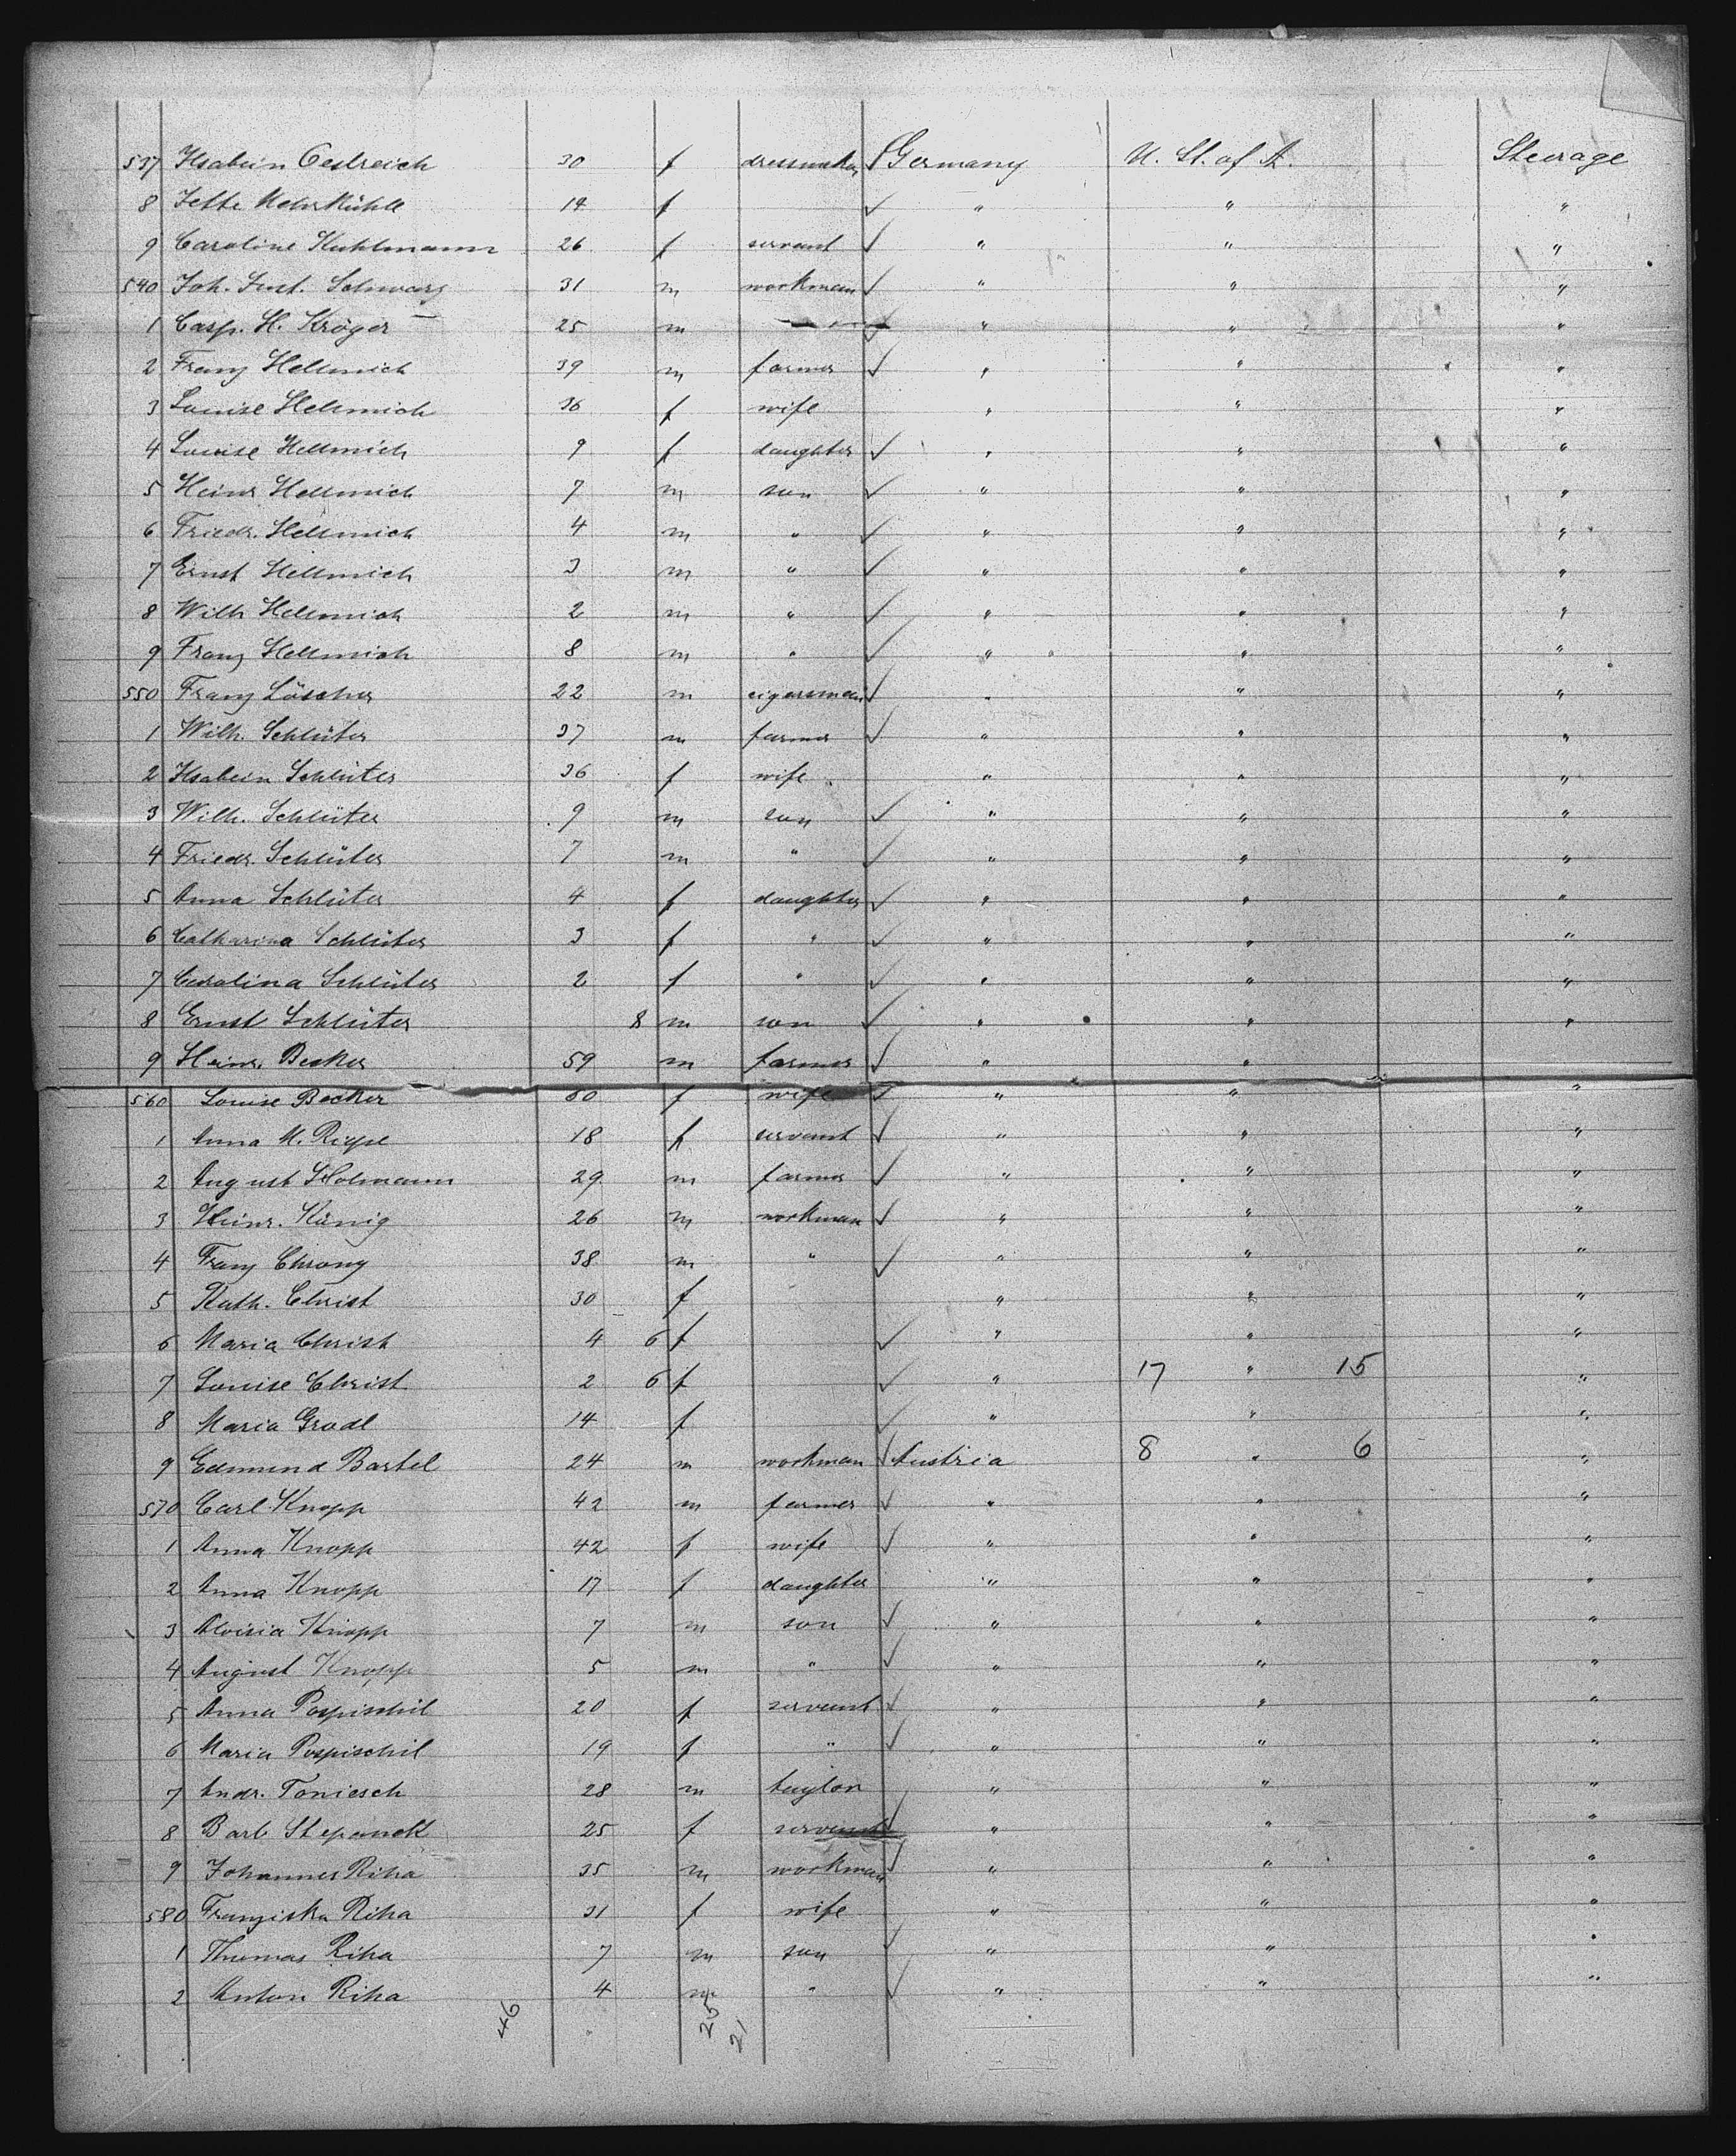 537 Ilsabein Oestreich 30 f dressmaker Germany U. St. of A. Steerage
8 Jette Mehrkühle 14 f " " "
9 Caroline Kuhlmann 26 f servant " " "
540 Joh. Schwarz 31 m workman " " "
1 Casp. H. Kröger 25 m " " "
2 Franz Hellmich 39 m farmer " " "
3 Louise Hellmich 36 f wife " " "
4 Louise Hellmich 9 f daughter " " "
5 Heinr Hellmich 7 m son " " "
6 Friedr. Hellmich 4 m " " " "
7 Ernst Hellmich 3 m " " " "
8 Wilh Hellmich 2 m " " " "
9 Franz Hellmich 8 m " " " "
550 Franz Löscher 22 m " " "
1 Wilh. Schlüter 37 m farmer " " "
2 Ilsabein Schlüter 36 f wife " " "
3 Wilh. Schlüter 9 m son " " "
4 Friedr. Schlüter 7 m " " " "
5 Anna Schlüter 4 f daughter " " "
6 Catharina Schlüter 3 f " " " "
7 Carolina Schlüter 2 f " " " "
8 Ernst Schlüter 8 m son " " "
9 Heinr. Becker 59 m farmer " "
560 Louise Becker 60 f wife " " "
1 Anna M. 18 f servant " " "
2 August 29 m farmer " " "
3 Heinr. König 26 m workman " " "
4 Franz 38 m " " " "
5 Kath. Christ 30 f " " "
6 Maria Christ 4 6 f " " "
7 Louise Christ 2 6 f " 17 " 15 "
8 Maria Gradl 14 f " " "
9 Edmund Bartel 24 m workman Austria 8 " 6 "
570 Carl Knopp 42 m farmer " " "
1 Anna Knopp 42 f wife " " "
2 Anna Knopp 17 f daughter " " "
3 Aloisia Knopp 7 m son " " "
4 August Knopp 5 m " " " "
5 Anna Pospischil 20 f servant " " "
6 Maria Pospischil 19 f " " " "
7 Andr. Toniesch 28 m taylor " " "
8 Barb Stepanek 25 f servant " " "
9 Johannes Riha 35 m workman " " "
580 Franziska Riha 31 f wife " " "
1 Thomas Riha 7 m son " " "
2 Anton Riha 4 m " " " "
46 25 21